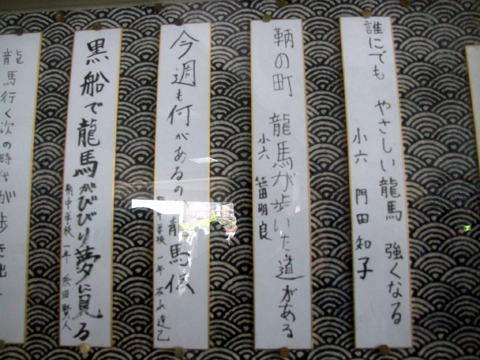 誰にでも やさしい龍馬 強くなる
小六 門田知子
鞆の町 龍馬が歩いた道がある
小六 笹田明良
今週も何があるの 龍馬伝
学校 一年
黒船で龍馬がびびり夢に見る
鞆中学校 一年 松田賢人
龍馬行く次の時代が歩き出